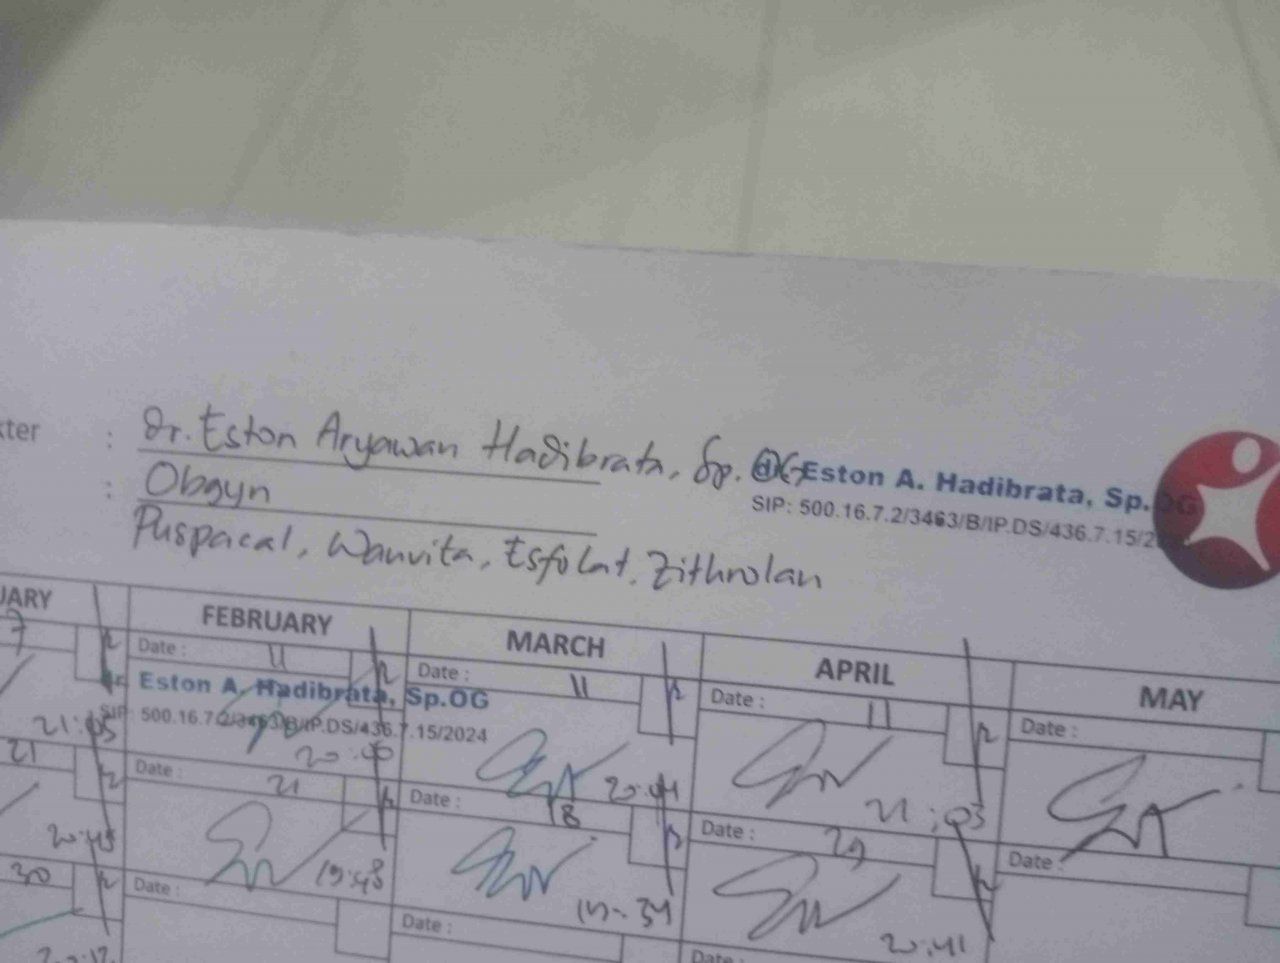 kter : Dr. Eston Aryawan Hadibrata, Sp. OG
Eston A. Hadibrata, Sp.OG
SIP: 500.16.7.2/3463/B/IP.DS/436.7.15/2
: Obgyn
Puspacal, Wanvita, Esfolat, Zithrolan
UARY FEBRUARY MARCH APRIL MAY
7 Date : 11 Date : 11 Date : 11 Date :
dr. Eston A. Hadibrata, Sp.OG
SIP: 500.16.7.2/3463/B/IP.DS/436.7.15/2024
21:05 20:00 20:04 21:03
21 Date : 21 Date : 18 Date : 29 Date :
20:45 19:43 20:41
30 Date : Date : Date :